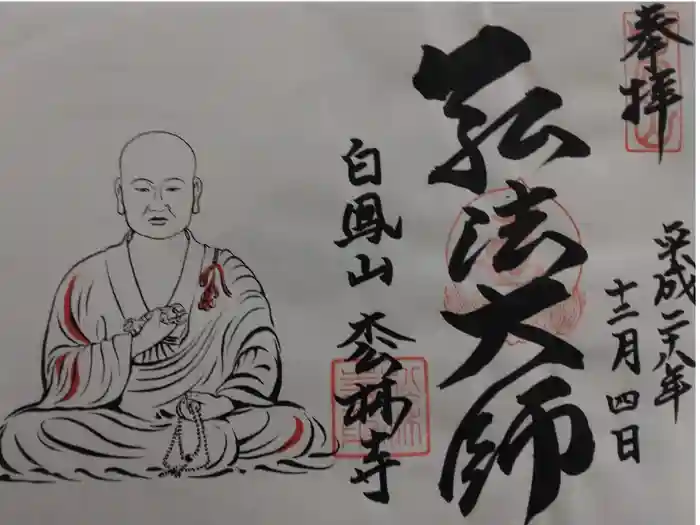 奉拝
平成二十八年
十二月四日
弘法大師
白鳳山
林寺